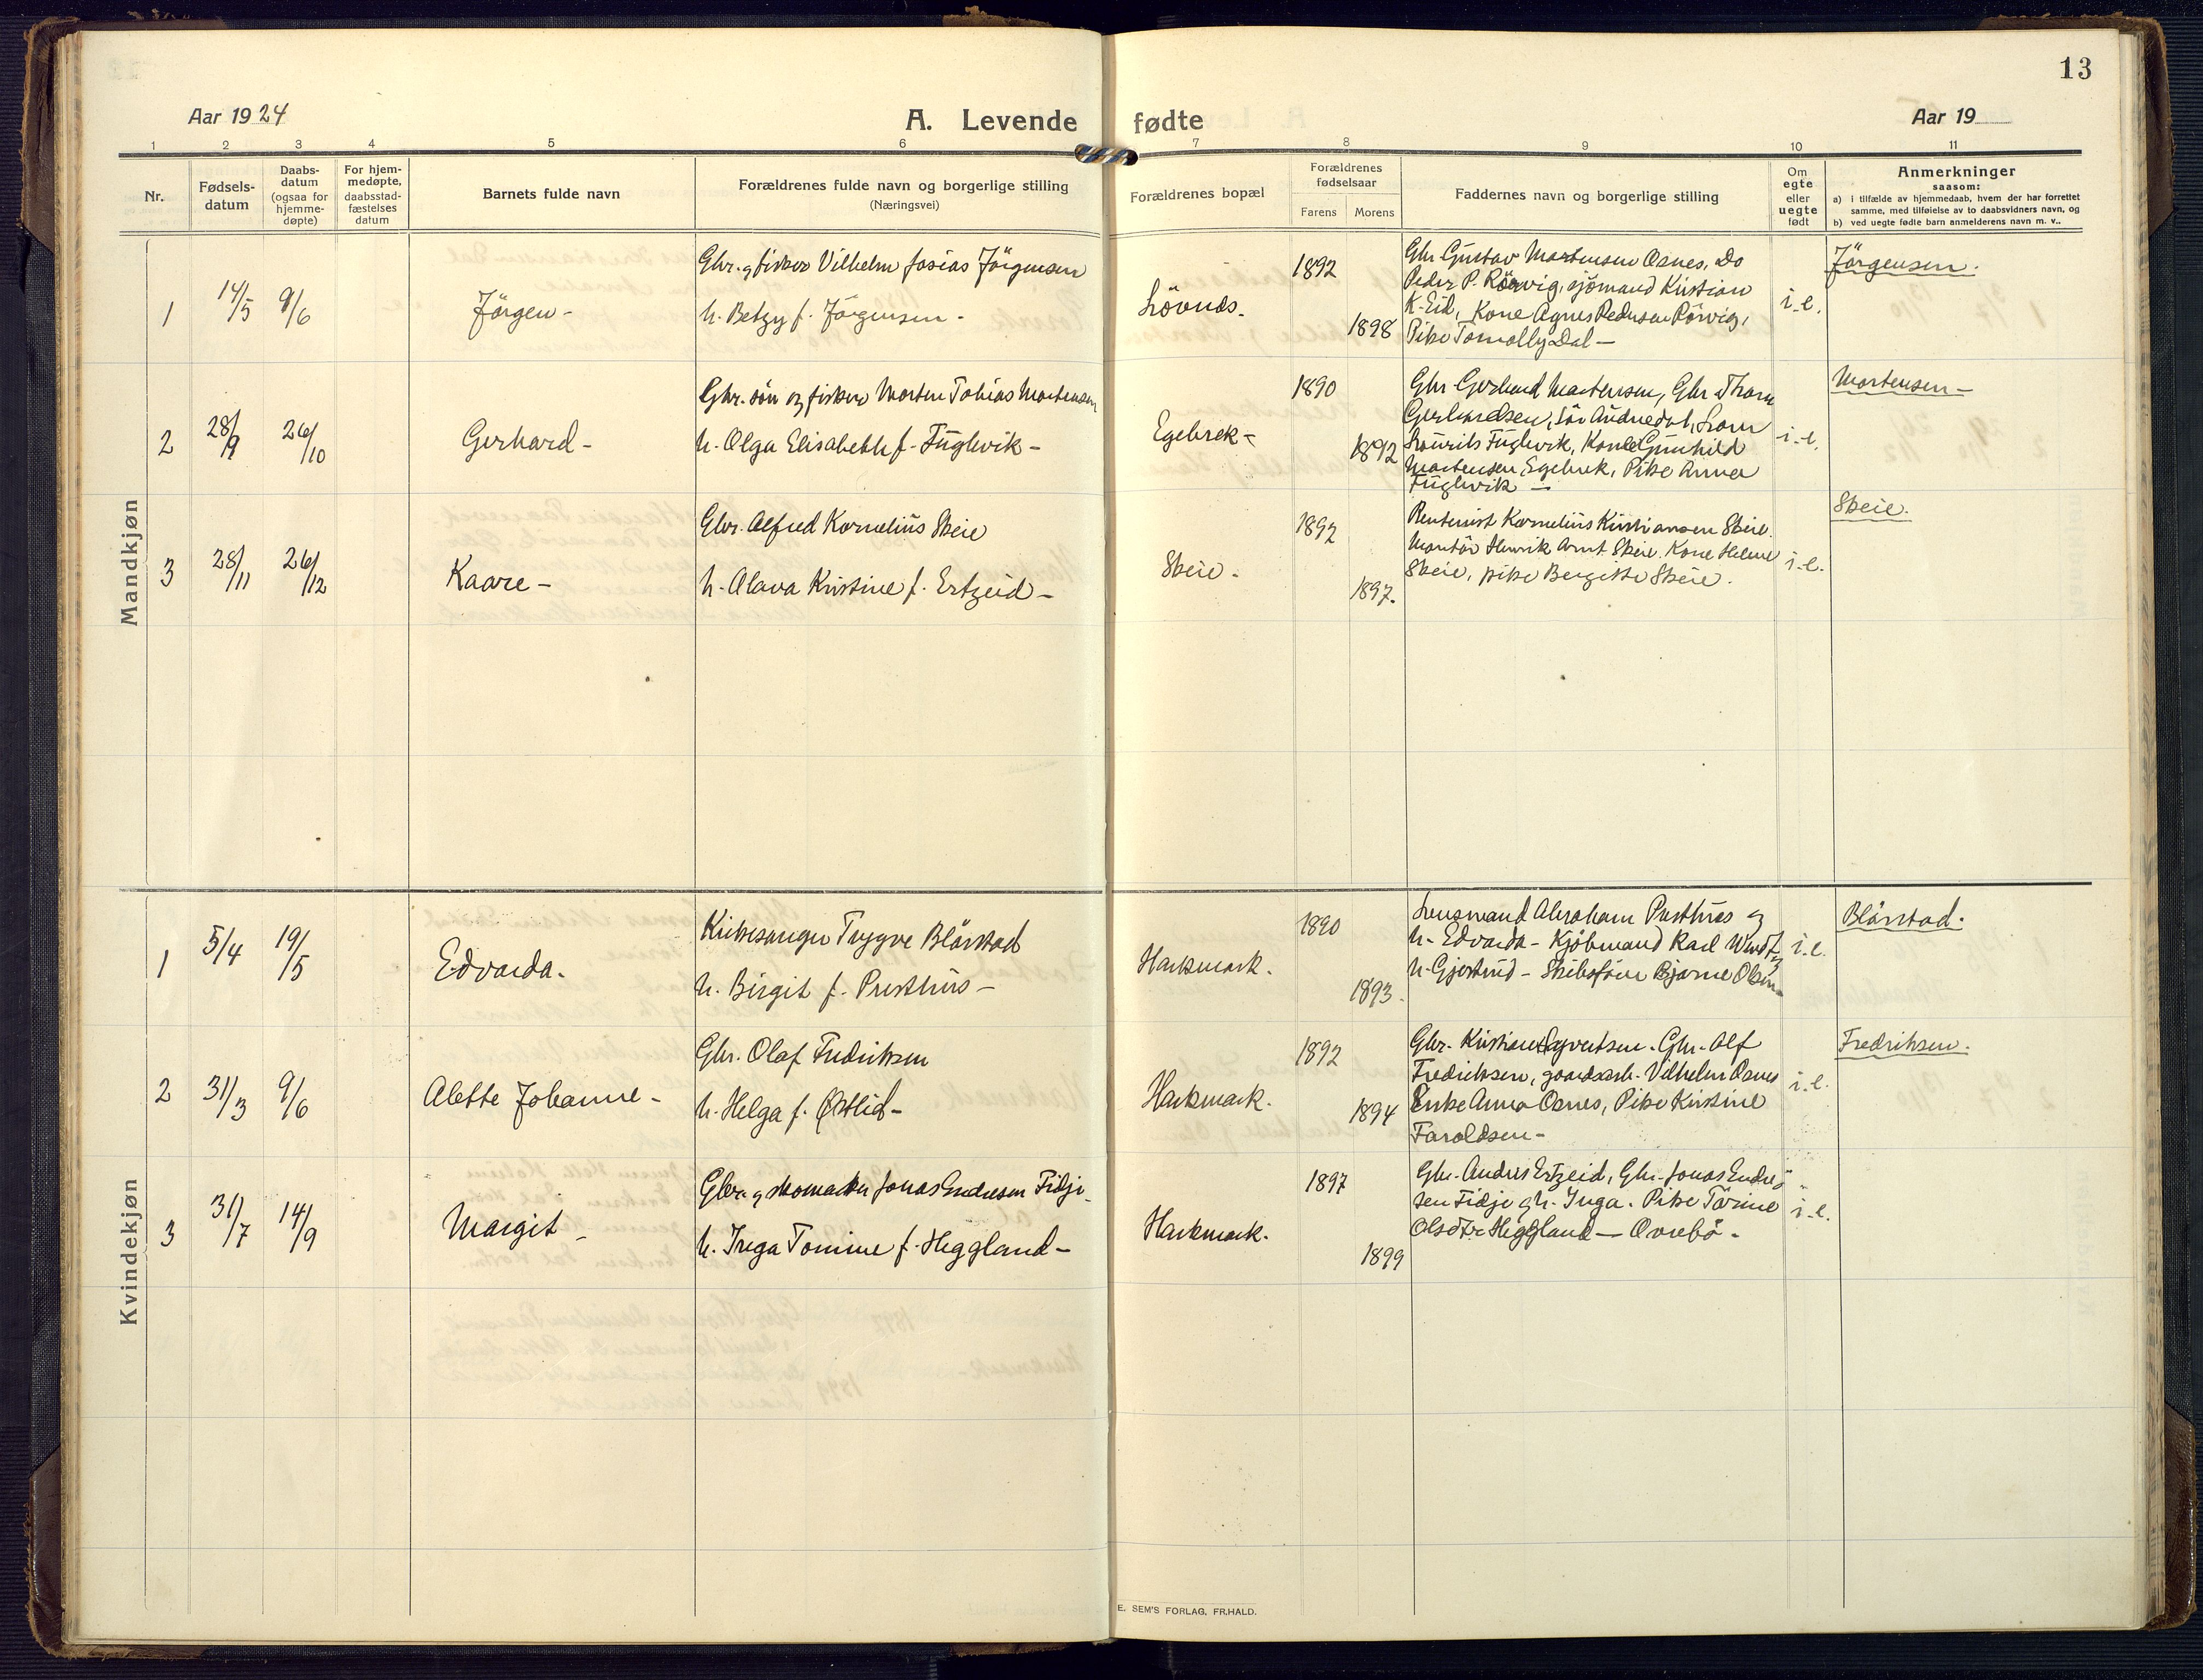 13
Aar 1924
A. Levende fødte
Aar 19
1 2 3 4 5 6 7 8 9 10 11
Nr.
Fødsels-
datum
Daabs-
datum
(ogsaa for
hjemme-
døpte)
For hjem-
medøpte,
daabsstad-
fæstelses
datum
Barnets fulde navn
Forældrenes fulde navn og borgerlige stilling
(Næringsvei)
Forældrenes bopæl
Forældrenes
fødselsaar
Farens Morens
Faddernes navn og borgerlige stilling
Om
egte
eller
uegte
født
Anmerkninger
saasom:
a) i tilfælde av hjemmedaab, hvem der har forrettet
samme, med tilføielse av to daabsvidners navn, og
b) ved uegte fødte barn anmelderens navn m. v..
Mandkjøn
1 14/5 9/6 Jörgen -
Gbr. og fisker Vilhelm Josias Jörgensen
h. Betzy f. Jörgensen -
Lövnes.
1892
1898
Gbr Gustav Mortensen Osnes, Do
Peder P. Rörvig, sjömand Kristian
K. Eid, Kone Agnes Pedersen Rörvig,
Pike Tomolly Dal -
i.e.
Jörgensen.
2 28/9 26/10 Gerhard -
Gbr. sön og fisker Morten Tobias Mortensen
h. Olga Elisabeth f. Fuglevik -
Egebrek -
1890
1892
Gbr Gerhard Mortensen, Gbr Thom
Gerhardsen, Sör Audnedal,
Laurits Fuglevik, Kone Gunhild
Mortensen, Egebrek, Pike Anna
Fuglevik -
i.e.
Mortensen -
3 28/11 26/12 Kaare -
Gbr. Alfred Kornelius Skeie
h. Olava Kristine f. Ertzeid -
Skeie.
1892
1897.
Rentenist Kornelius Kristiansen Skeie.
Montör Henrik Arnt Skeie. Kone Helene
Skeie, pike Bergitte Skeie.
i.e.
Skeie.
Kvindekjøn
1 5/4 19/5 Edvarda.
Kirkesanger Trygve Blörstad
h. Birgit f. Presthus -
Harkmark.
1890
1893.
Lensmand Abraham Presthus og
h. Edvarda - Kjöbmand Karl Wendt og
h. Gjertrud - Skibsförer Bjarne Olsen -
i.e.
Blörstad.
2 31/3 9/6 Alette Johanne -
Gbr. Olaf Fredriksen
h. Helga f. Östlid -
Harkmark.
1892
1894
Gbr. Kristian Syvertsen. Gbr. Alf
Fredriksen, gaardsarb. Vilhelm Osnes
Enke Anna Osnes, Pike Kristine
Faroldsen -
i.e.
Fredriksen.
3 31/7 14/9 Margit -
Gbr. og skomaker Jonas Endresen Fidje.
h. Inga Tomine f. Heggland -
Harkmark.
1897
1899
Gbr. Andres Ertzeid, Gbr. Jonas Endre-
sen Fidje og h. Inga. Pike Torine
Olsdtr Heggland - Övrebö.
i.e.
E. SEM'S FORLAG, FR.HALD.